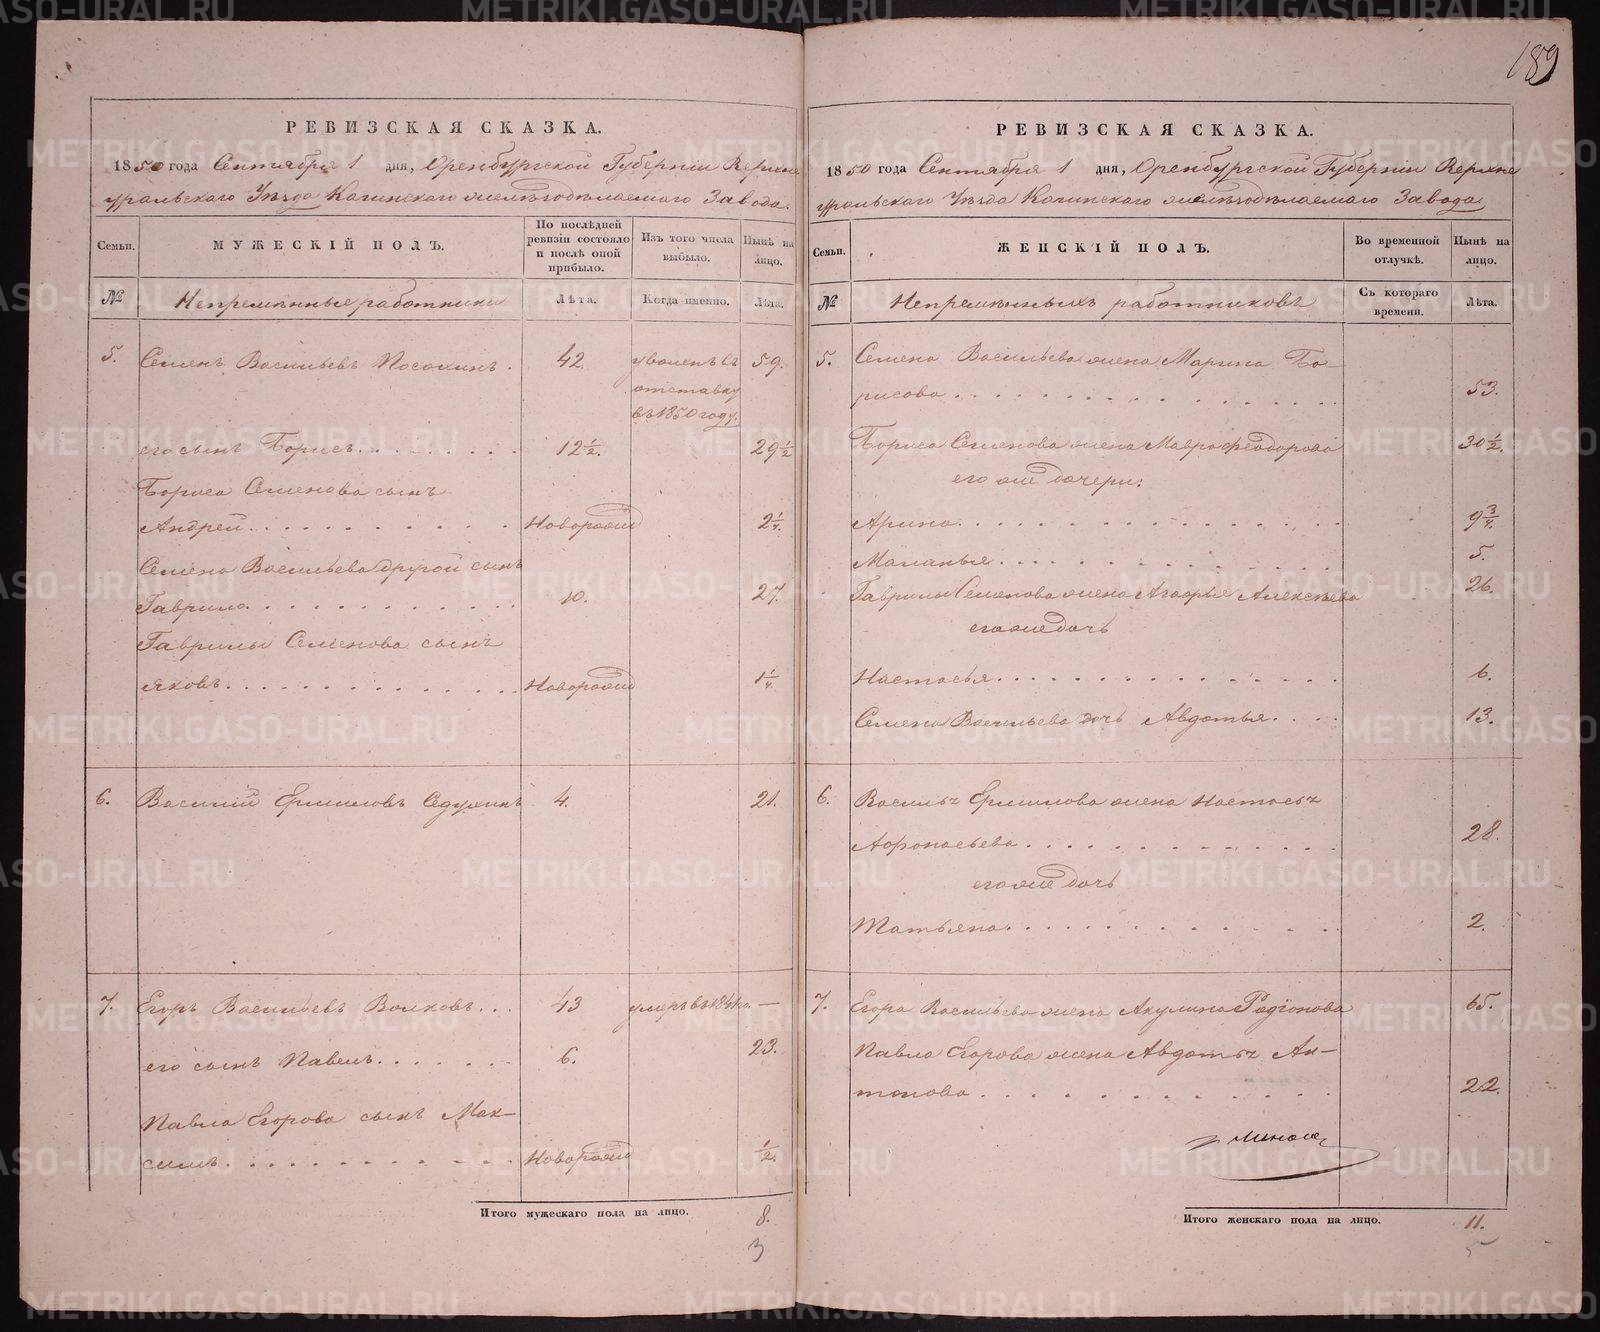 189
РЕВИЗСКАЯ СКАЗКА.
1850 года Сентября 1 дня, Оренбургской Губерніи Верхне
уральскаго Уѣзда Кагинскаго желѣзодѣлаемаго Завода.
Семьи.
МУЖЕСКІЙ ПОЛЪ.
По послѣдней ревизіи состояло и послѣ оной прибыло.
Изъ того числа выбыло.
Нынѣ на лицо.
№
Непремѣнные работники
Лѣта.
Когда именно.
Лѣта.
5. Семенъ Васильевъ Посохинъ. 42. уволенъ въ 59.
отставку
въ 1850 году.
его сынъ Борисъ 12½. 29½
Бориса Семенова сынъ
Андрей Новорожд 2¼.
Семена Васильева другой сынъ
Гаврило 10. 27.
Гаврилы Семенова сынъ
Яковъ Новорожд 1¼.
6. Василій Ермиловъ Седухинъ 4. 21.
7. Егоръ Васильевъ Волковъ 43 умеръ въ 184 —
его сынъ Павелъ 6. 23.
Павла Егорова сынъ Мак-
симъ Новорожд ½.
Итого мужескаго пола на лицо. 8.
3
РЕВИЗСКАЯ СКАЗКА.
1850 года Сентября 1 дня, Оренбургской Губерніи Верхне
уральскаго Уѣзда Кагинскаго желѣзодѣлаемаго Завода
Семьи.
ЖЕНСКІЙ ПОЛЪ.
Во временной отлучкѣ.
Нынѣ на лицо.
№
Непремѣнныхъ работниковъ
Съ котораго времени.
Лѣта.
5. Семена Васильева жена Марина Бо-
рисова 53.
Бориса Семенова жена Мавра Феодорова 30½.
его же дочери:
Арина 9¾.
Маланья 5.
Гаврилы Семенова жена Агафья Алексѣева 26.
его же дочь
Настасья 6.
Семена Васильева дочь Авдотья 13.
6. Василья Ермилова жена Настасья
Афонасьева 28.
его же дочь
Татьяна 2.
7. Егора Васильева жена Акулина Родіонова 65.
Павла Егорова жена Авдотья Ан-
тонова 22.
Итого женскаго пола на лицо. 11.
5
METRIKI.GASO-URAL.RU